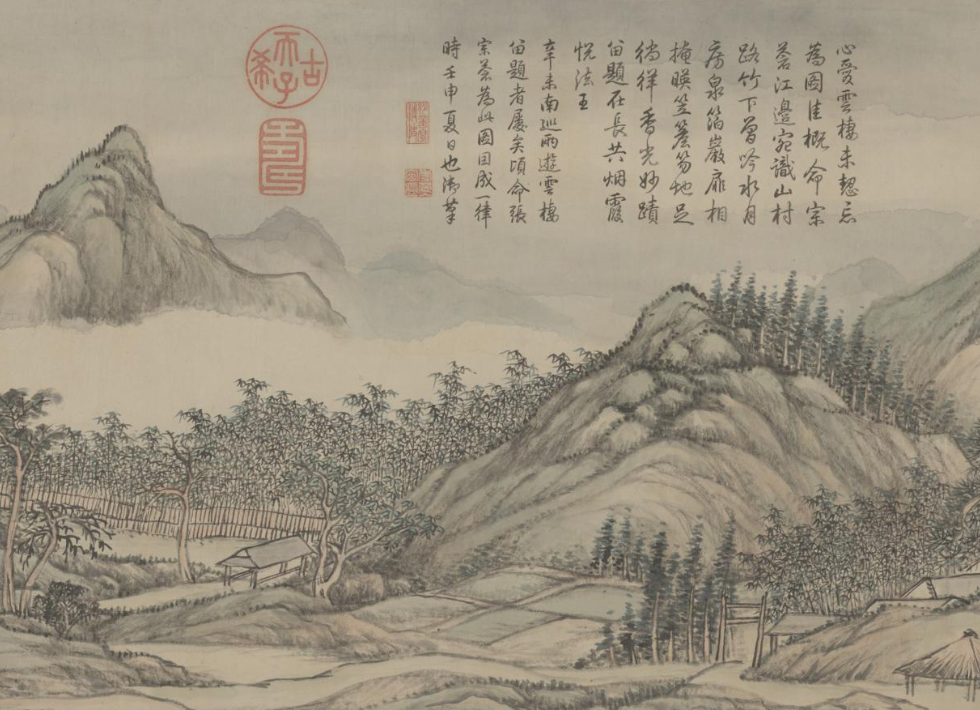 心愛雲棲未恝忘
為圖佳概命宗
蒼江邊宛識山村
路竹下曾吟水月
房泉箔巖扉相
掩暎笠簑芻牧足
徜徉香光妙蹟
留題在長共烟霞
悅法王
辛未南巡兩遊雲棲
留題者屢矣頃命張
宗蒼為此圖因成一律
時壬申夏日也御筆
古希天子
壽